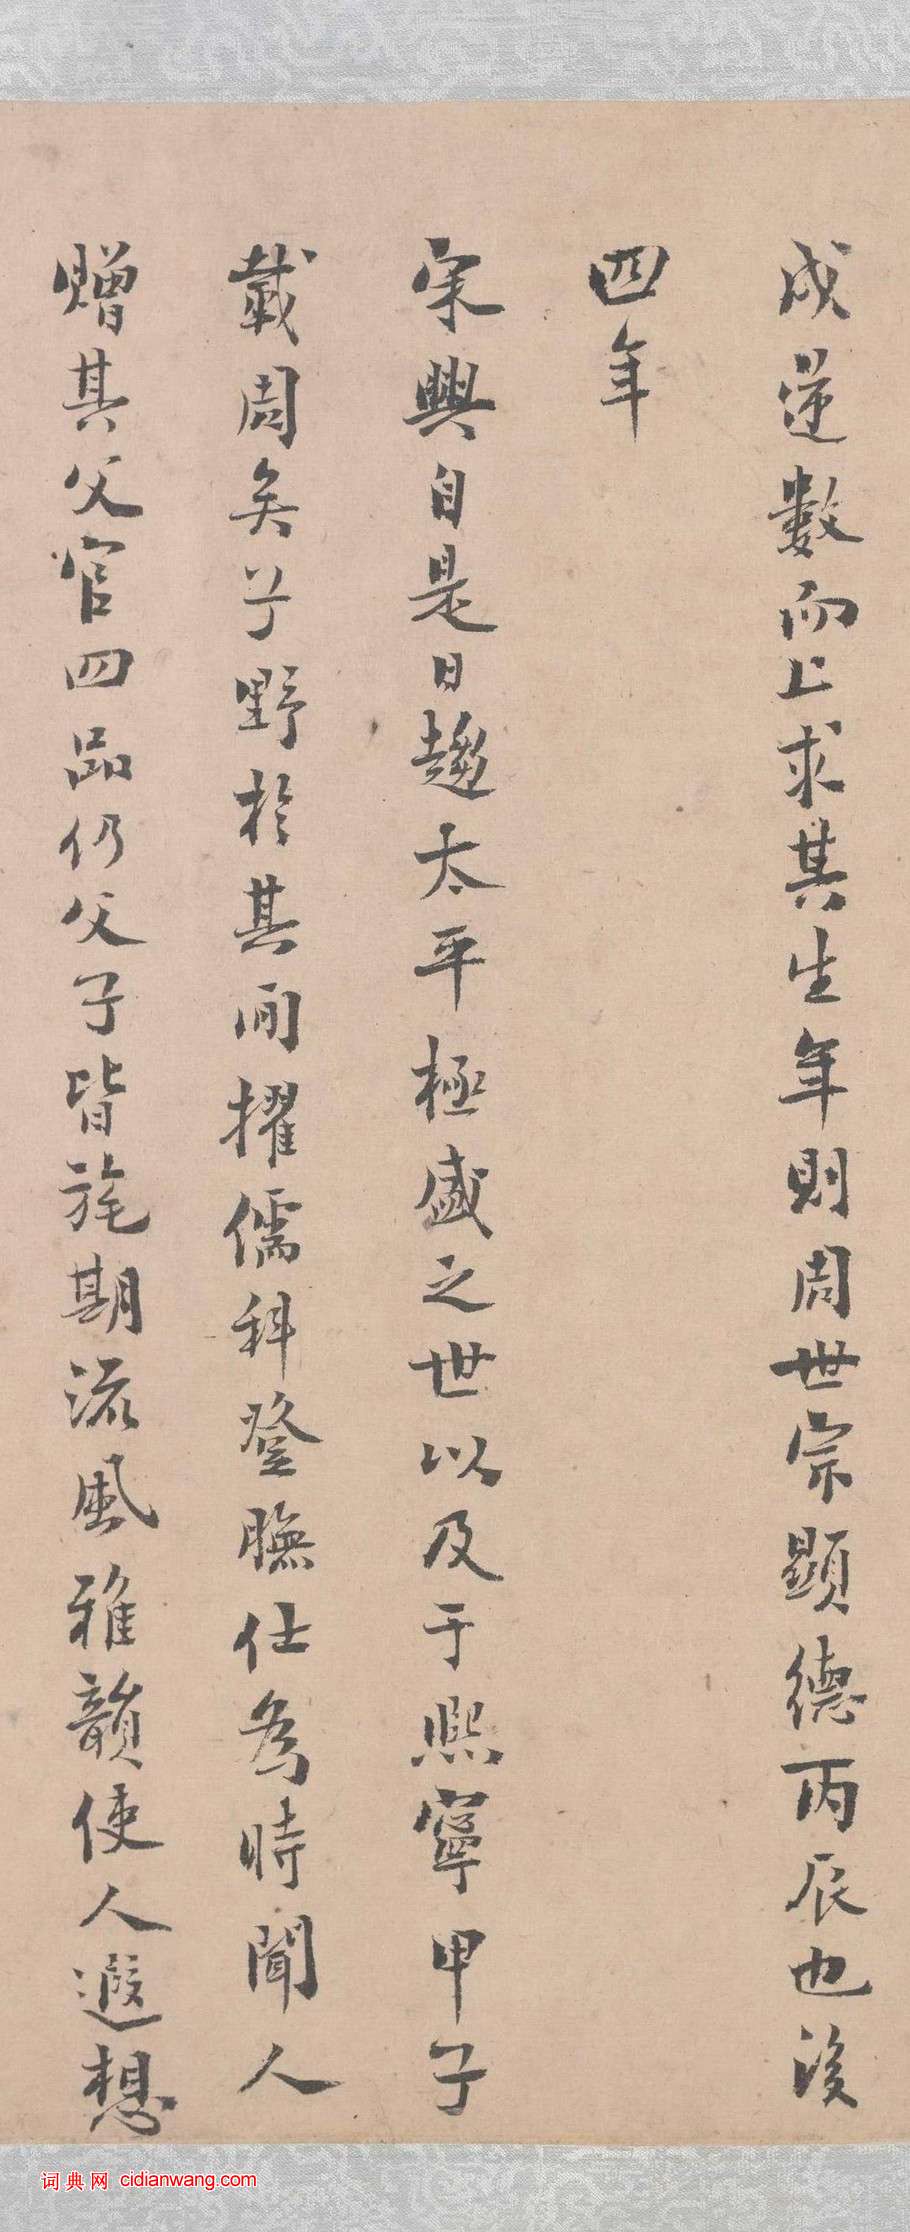 成逆數而上求其生年則周世宗顯德丙辰也後
四年
宋興自是日趨太平極盛之世以及于熙寧甲子
載周矣子野於其間擢儒科登膴仕為時聞人
贈其父官四品仍父子皆旄期流風雅韻使人遐想
词典网 cidianwang.com